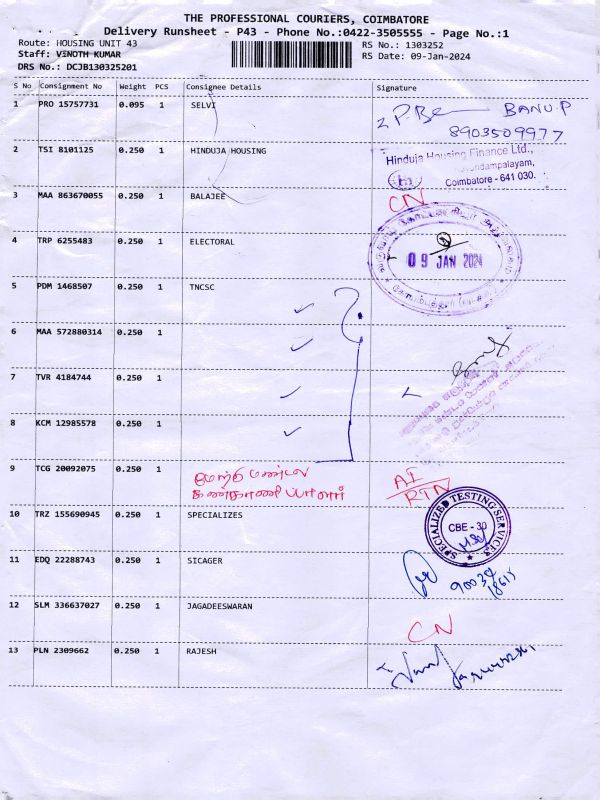 THE PROFESSIONAL COURIERS, COIMBATORE
Delivery Runsheet - P43 - Phone No.:0422-3505555 - Page No.:1
Route: HOUSING UNIT 43
RS No.: 1303252
Staff: VINOTH KUMAR
RS Date: 09-Jan-2024
DRS No.: DCJB130325201
S No Consignment No Weight PCS Consignee Details Signature
1 PRO 15757731 0.095 1 SELVI
BANU.P
8903509977
2 TSI 8101125 0.250 1 HINDUJA HOUSING
Hinduja Housing Finance Ltd.,
Coimbatore - 641 030.
3 MAA 863670055 0.250 1 BALAJEE
CN
4 TRP 6255483 0.250 1 ELECTORAL
09 JAN 2024
5 PDM 1468507 0.250 1 TNCSC
6 MAA 572880314 0.250 1
7 TVR 4184744 0.250 1
8 KCM 12985578 0.250 1
9 TCG 20092075 0.250 1
AI
RTN
10 TRZ 155690945 0.250 1 SPECIALIZES
SPECIALIZED TESTING SERVICE
CBE - 30
11 EDQ 22288743 0.250 1 SICAGER
12 SLM 336637027 0.250 1 JAGADEESWARAN
CN
13 PLN 2309662 0.250 1 RAJESH